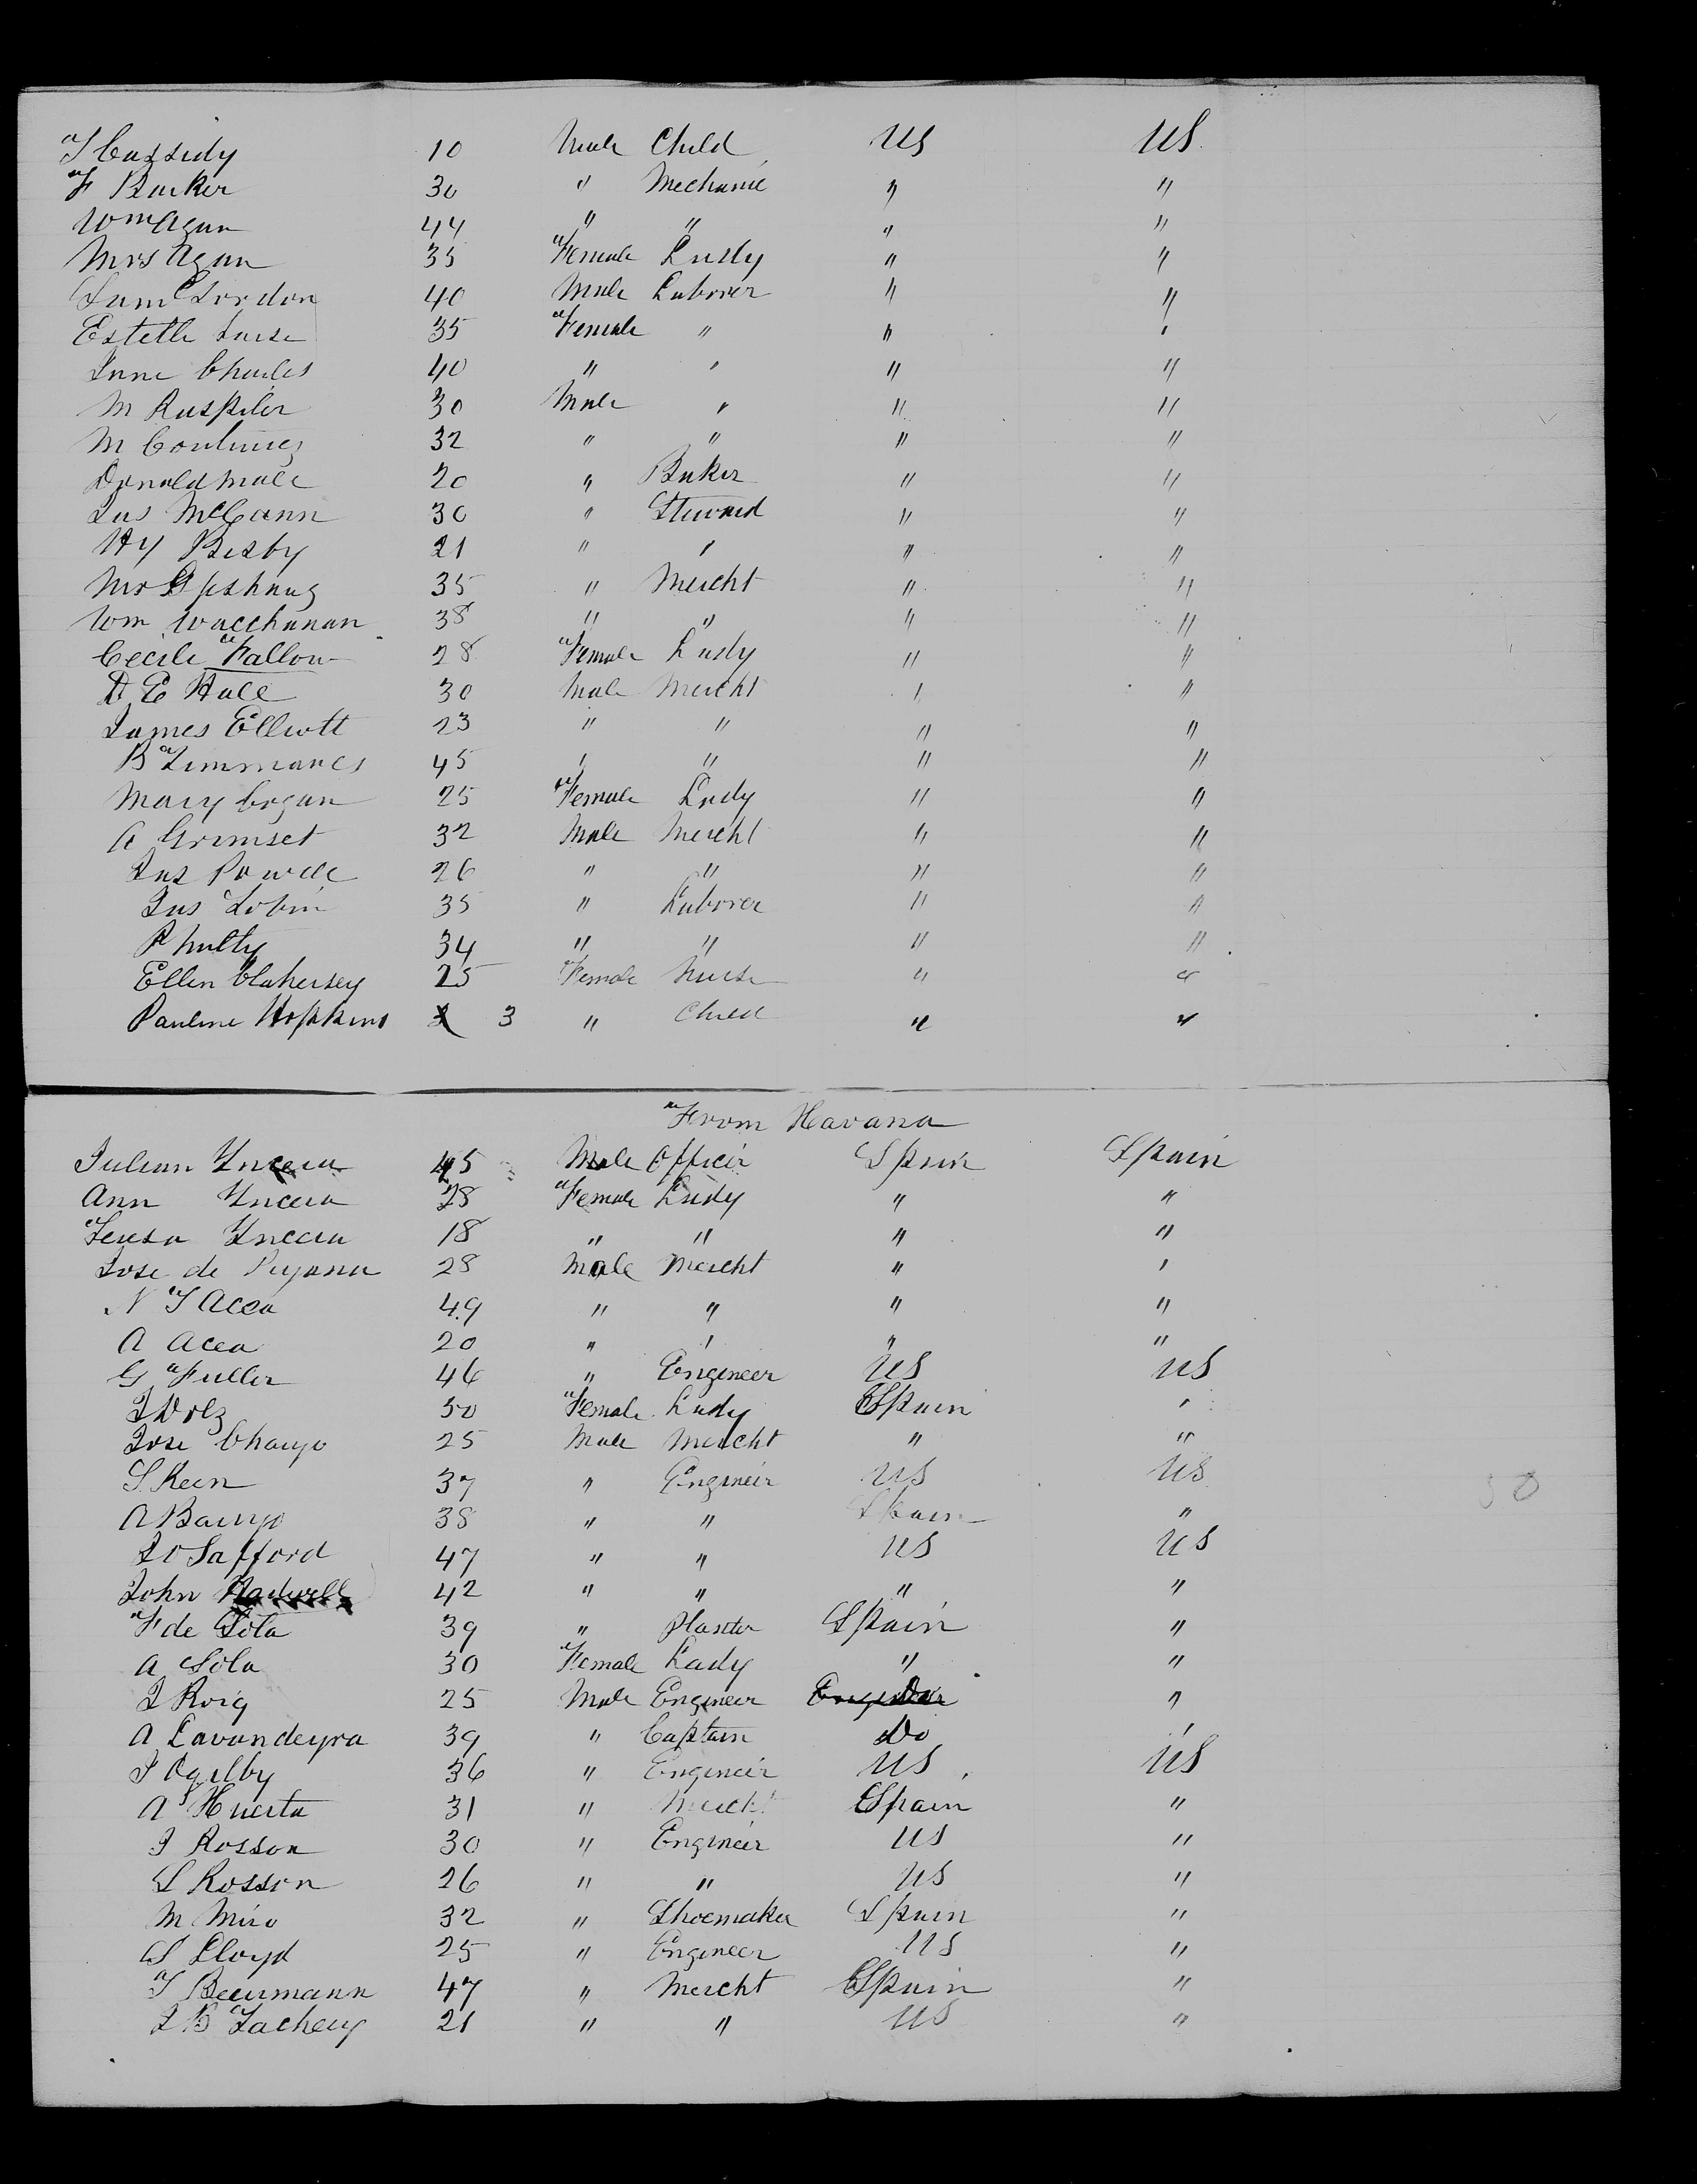 T Cassidy 10 Male Child US US
F Barker 30 " Mechanic " "
Wm Agan 44 " " " "
Mrs Agan 35 Female Lady " "
Saml Gordon 40 Male Laborer " "
Estelle 35 Female " " "
Jane Charles 40 " " " "
M 30 Male " " "
M 32 " " " "
Donald 20 " Baker " "
Jas McCann 30 " Steward " "
Hy Bisby 21 " " " "
Mr 35 " Mercht " "
Wm 38 " " " "
Cecile Fallon 28 Female Lady " "
D E Hall 30 Male Mercht " "
James Elliott 23 " " " "
B 45 " " " "
Mary Cogan 25 Female Lady " "
A Grimset 32 Male Mercht " "
Jas Powell 26 " " " "
Jas Tobin 35 " Laborer " "
P 34 " " " "
Ellen 25 Female Nurse " "
Pauline Hopkins 3 " Child " "
From Havana
Julian Yncera 45 Male Officer Spain Spain
Ann Yncera 28 Female Lady " "
Teresa Yncera 18 " " " "
Jose de 28 Male Mercht " "
N T Acea 49 " " " "
A Acea 20 " " " "
G Fuller 46 " Engineer US US
J Dolz 50 Female Lady Spain "
Jose 25 Male Mercht " "
S Keen 37 " Engineer US US
A 38 " " Spain "
J O Safford 47 " " US US
John 42 " " " "
F de Sola 39 " Planter Spain "
A Sola 30 Female Lady " "
J Roig 25 Male Engineer Do "
A Lavandeyra 39 " Captain Do "
J Ogilby 36 " Engineer US US
A Huerta 31 " Mercht Spain "
J Rosson 30 " Engineer US "
S Rosson 26 " " US "
M Miro 32 " Shoemaker Spain "
S Lloyd 25 " Engineer US "
T Beermann 47 " Mercht Spain "
J B Zachery 21 " " US "
50